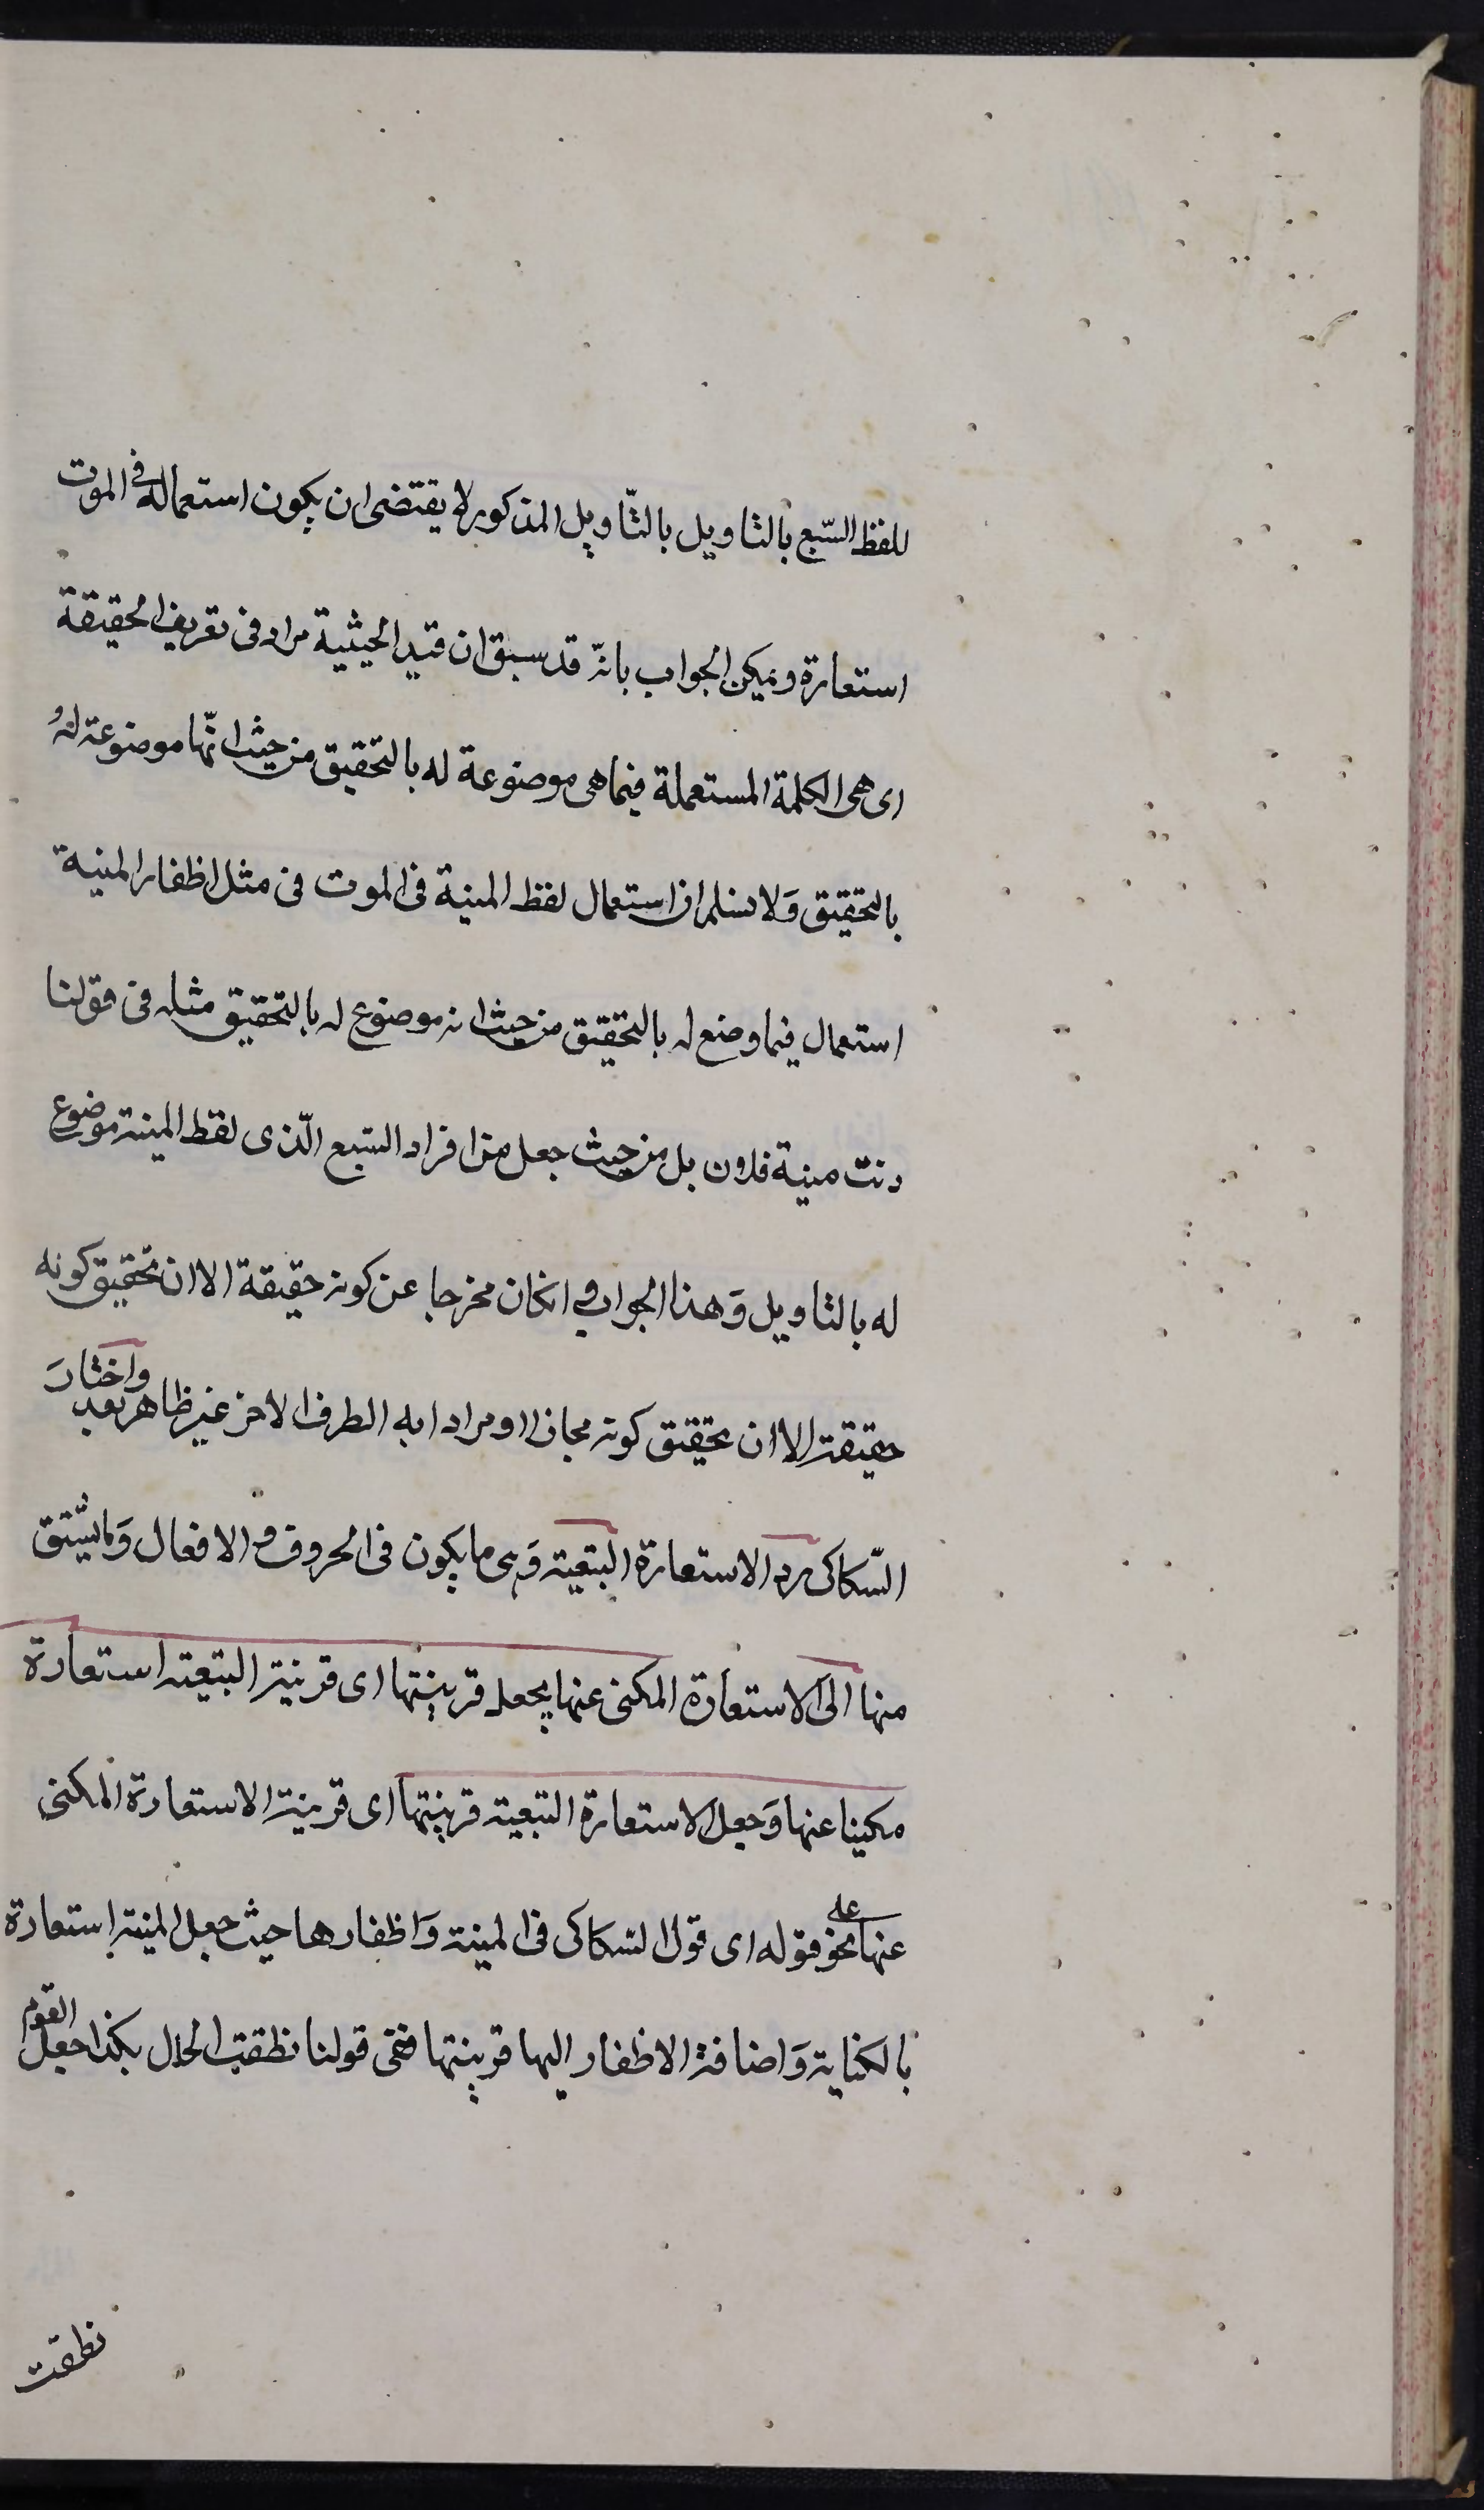 للفظ السّبع بالتاويل بالتّاويل المذكور لا يقتضى ان يكون استعماله فى الموت
استعارة ويمكن الجواب بانّه قد سبق ان قيد الحيثية مراد فى تعريف الحقيقة
اى هى الكلمة المستعملة فيما هى موضوعة له بالتحقيق من حيث انّها موضوعة له
بالتحقيق وَلا نسلم ان استعمال لفظ المنية فى الموت فى مثل اظفار المنية
استعمال فيما وضع له بالتحقيق من حيث انه موضوع له بالتحقيق مثله فى قولنا
دنت منية فلان بل من حيث جعل من افراد السّبع الّذى لفظ المنية موضوع
له بالتاويل وَهذا الجواب و انكان مخرجا عن كونه حقيقة الا ان تحقيق كونه
حقيقة الا ان تحقيق كونه مجازا او مرادا به الطرف الاخر غير ظاهر بعد واختارَ
السّكاكى رد الاستعارة التبعية وَهى ما يكون فى الحروف و الافعال وَما يشتق
منها الى الاستعارة المكنى عنها بجعل قرينتها اى قرينة التبعية استعارة
مكنيا عنها وَجعل الاستعارة التبعية قرينتها اى قرينة الاستعارة المكنى
عنها على نحو قوله اى قول السّكاكى فى المنية وَاظفارها حيث جعل المنية استعارة
بالكناية وَاضافة الاظفار اليها قرينتها ففى قولنا نطقت الحال بكذا جعل القوم
نطقت